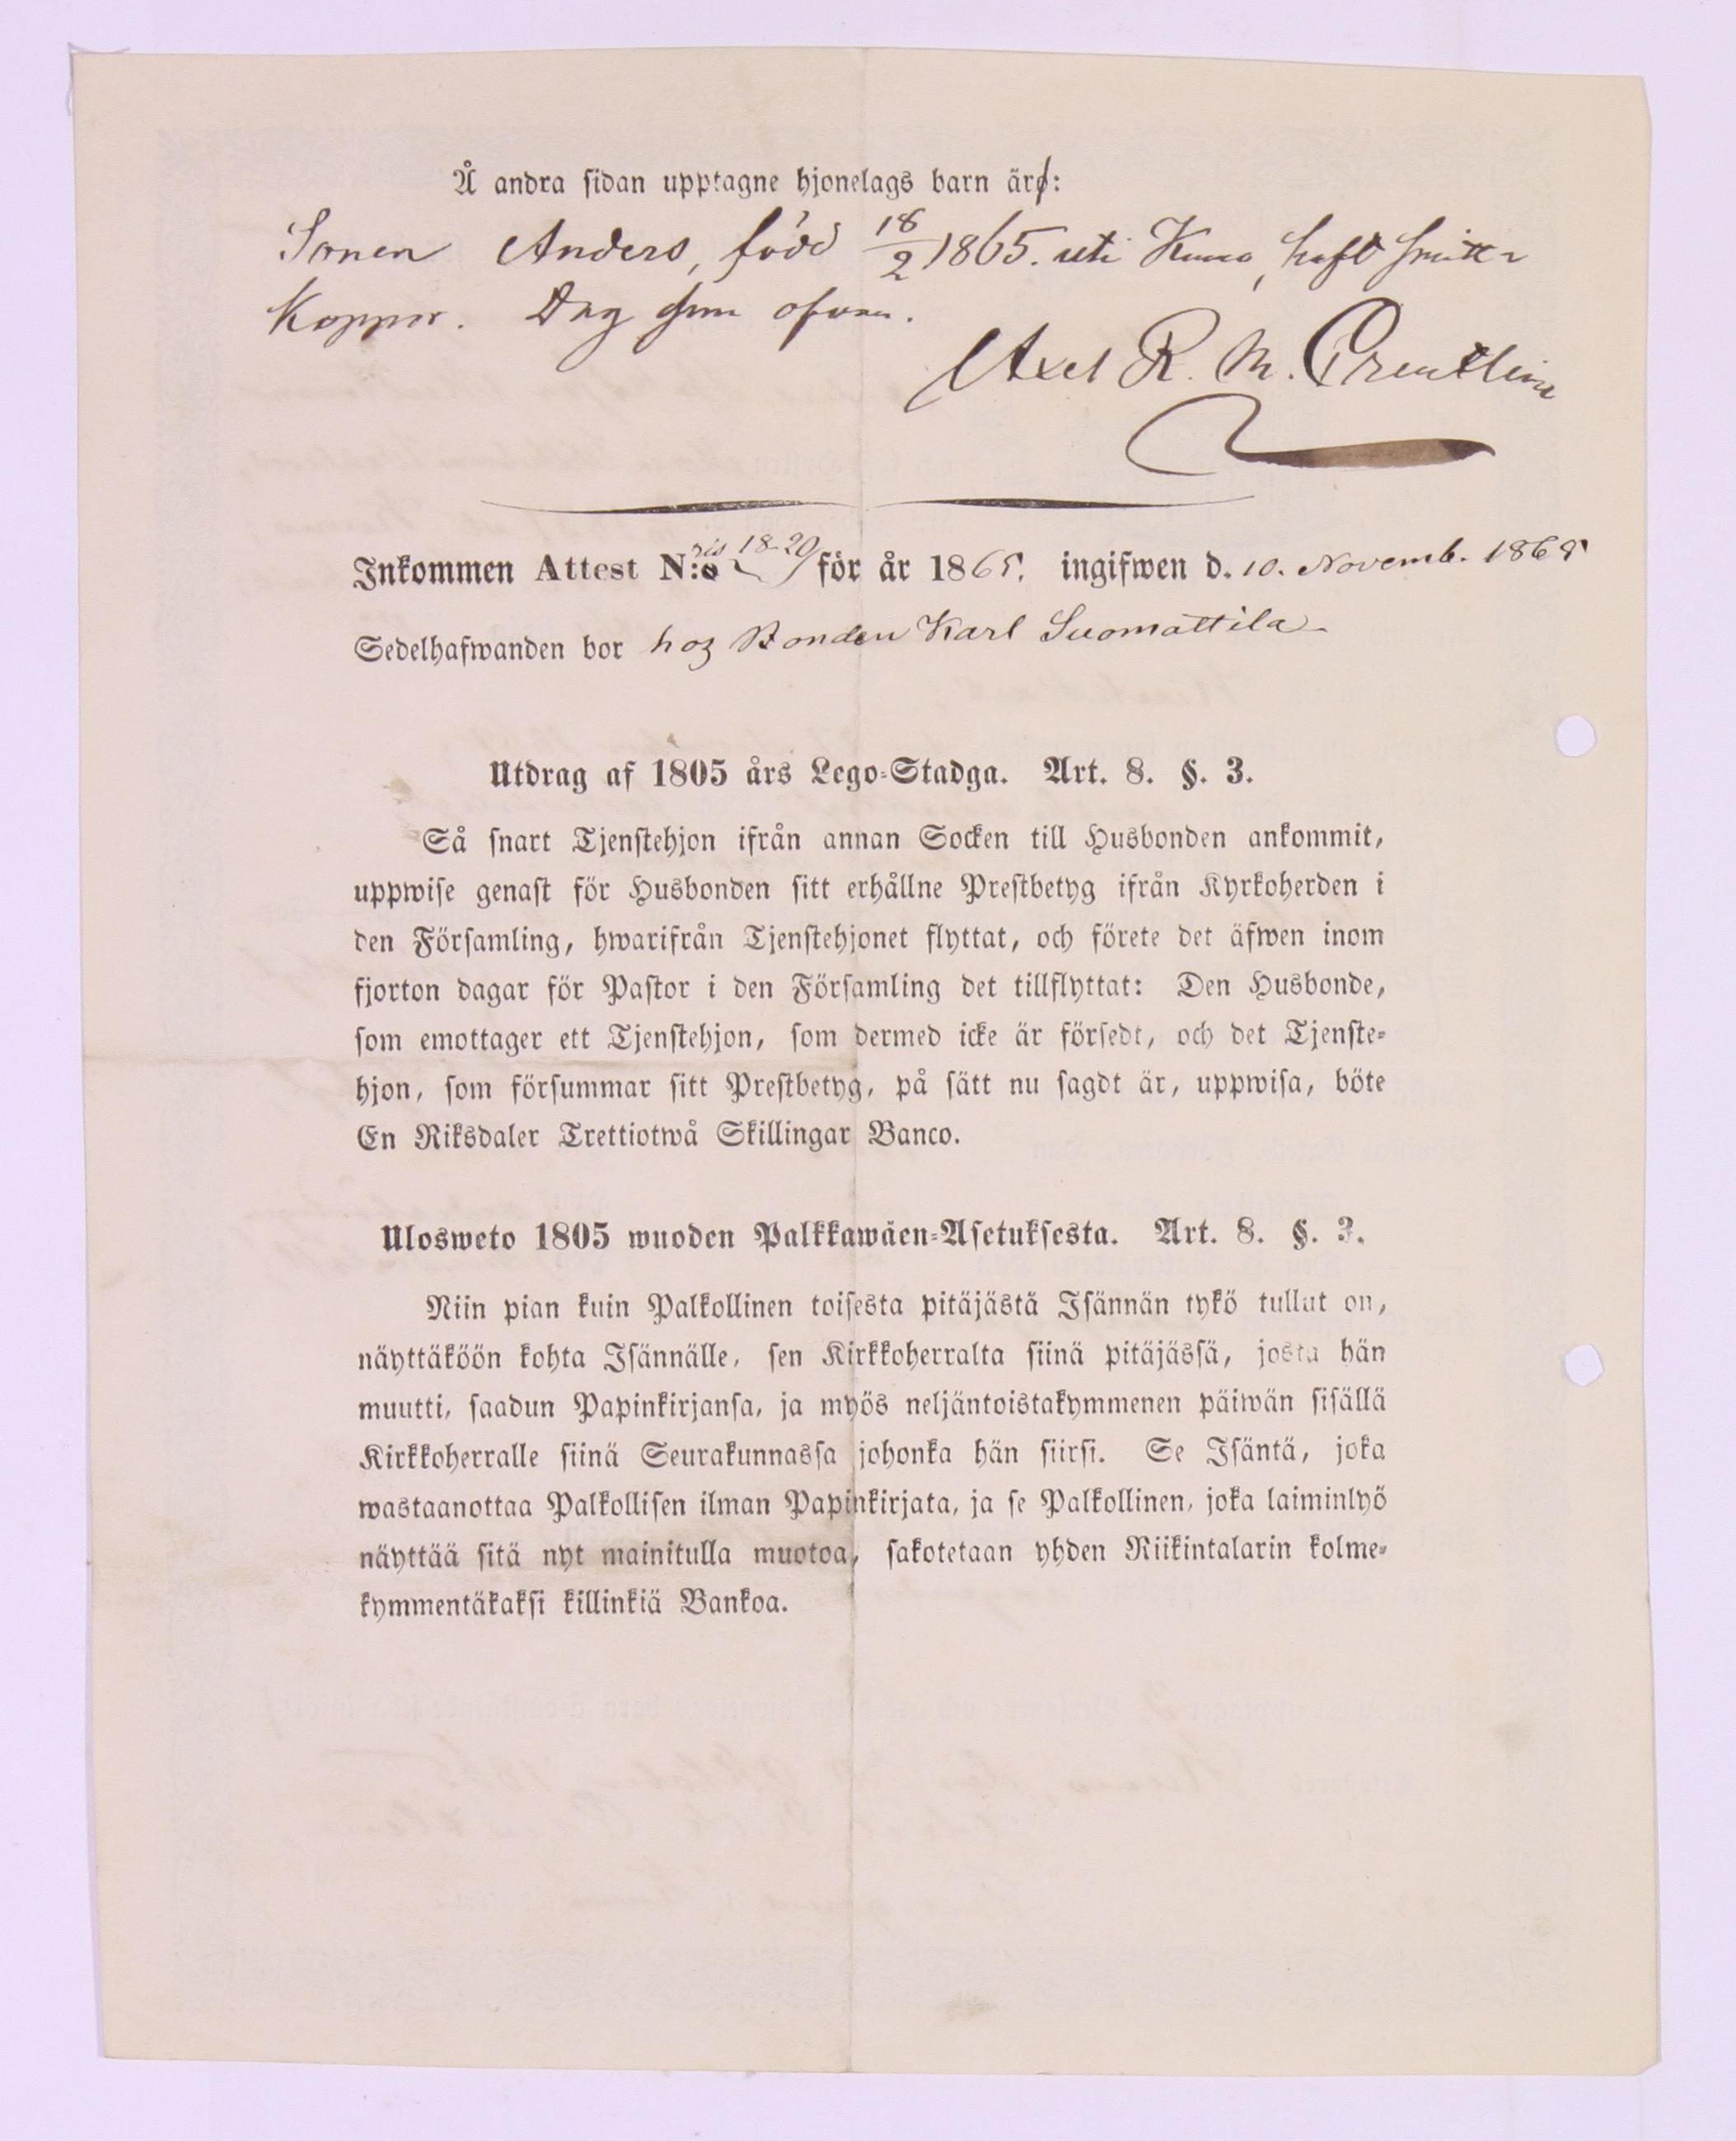 Å andra sidan upptagne hjonelags barn är:
Sonen Anders, född 18/2 1865. uti Kumo, haft smitt-
koppor. Dag som ofvan.
Axel R. M.
Inkommen Attest N:ris 18-20 för år 1865. ingifwen d. 10. Novemb. 1865
Sedelhafwanden bor hos Bonden Karl Suomattila
Utdrag af 1805 års Lego-Stadga. Art. 8. §. 3.
Så snart Tjenstehjon ifrån annan Socken till Husbonden ankommit,
uppwise genast för Husbonden sitt erhållne Prestbetyg ifrån Kyrkoherden i
den Församling, hwarifrån Tjenstehjonet flyttat, och förete det äfwen inom
fjorton dagar för Pastor i den Församling det tillflyttat: Den Husbonde,
som emottager ett Tjenstehjon, som dermed icke är försedt, och det Tjenste-
hjon, som försummar sitt Prestbetyg, på sätt nu sagdt är, uppwisa, böte
En Riksdaler Trettiotwå Skillingar Banco.
Ulosweto 1805 wuoden Palkkawäen-Asetuksesta. Art. 8. §. 3.
Niin pian kuin Palkollinen toisesta pitäjästä Isännän tykö tullut on,
näyttäköön kohta Isännälle, sen Kirkkoherralta siinä pitäjässä, josta hän
muutti, saadun Papinkirjansa, ja myös neljäntoistakymmenen päiwän sisällä
Kirkkoherralle siinä Seurakunnassa johonka hän siirsi. Se Isäntä, joka
wastaanottaa Palkollisen ilman Papinkirjata, ja se Palkollinen, joka laiminlyö
näyttää sitä nyt mainitulla muotoa, sakotetaan yhden Riikintalarin kolme-
kymmentäkaksi killinkiä Bankoa.